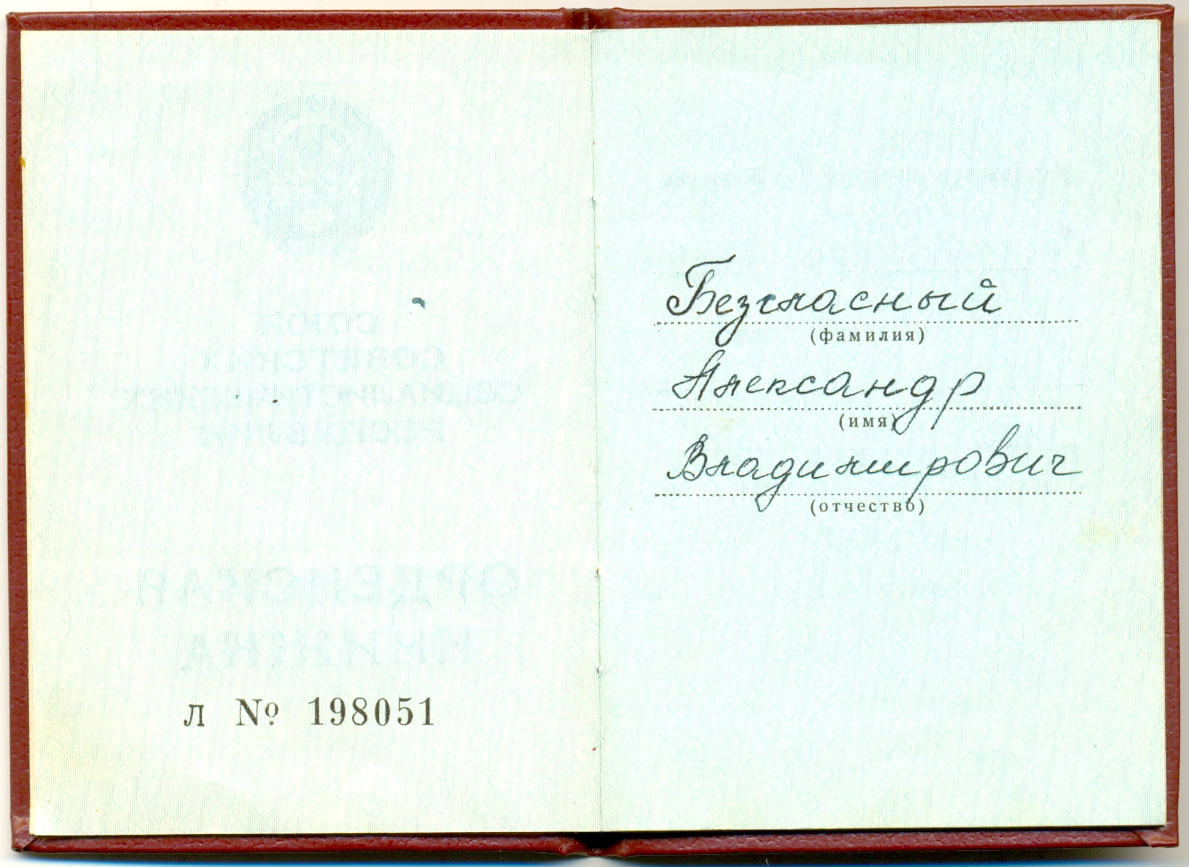 СОЮЗ
СОВЕТСКИХ
СОЦИАЛИСТИЧЕСКИХ
РЕСПУБЛИК
ОРДЕНСКАЯ
КНИЖКА
Л № 198051
Безгласный
(фамилия)
Александр
(имя)
Владимирович
(отчество)